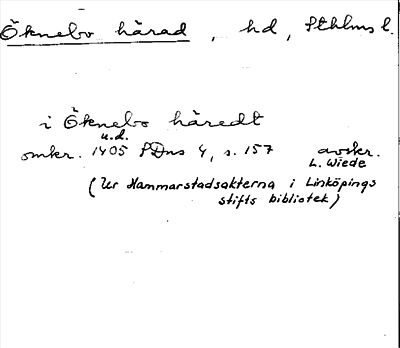 Öknebo härad, hd, Sthlms l.
i Öknebo häredt
u.d.
omkr. 1405 SDns 4, s. 157 avskr.
L. Wiede
(Ur Hammarstadsakterna i Linköpings
stifts bibliotek)